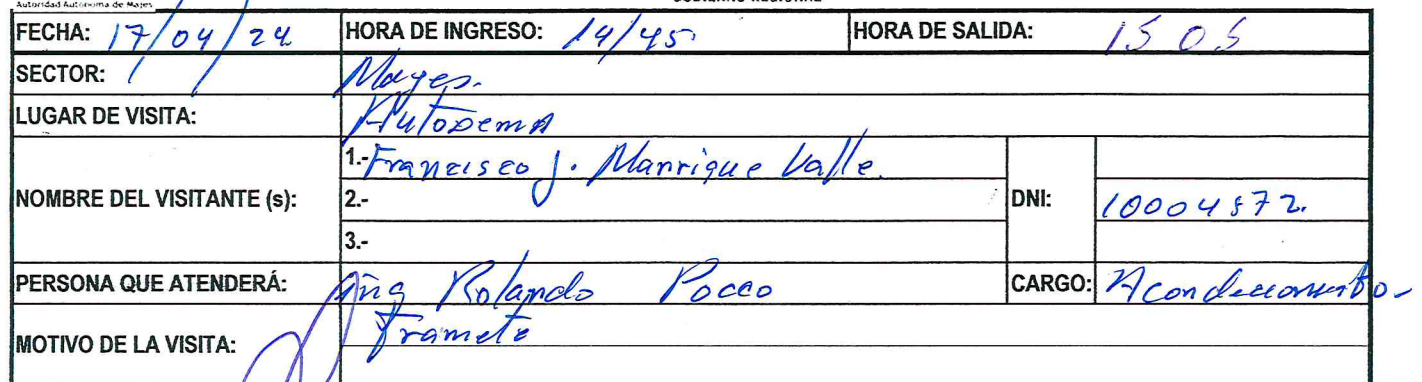 Autoridad Autónoma de Majes
FECHA: 17/04/24 HORA DE INGRESO: 14/45 HORA DE SALIDA: 15 05
SECTOR: Mayes.
LUGAR DE VISITA: Autodema
NOMBRE DEL VISITANTE (s): 1.- Francisco J. Manrique Valle.
2.- DNI: 10004872.
3.-
PERSONA QUE ATENDERÁ: Ing Rolando Pocco CARGO:
MOTIVO DE LA VISITA: Tramete